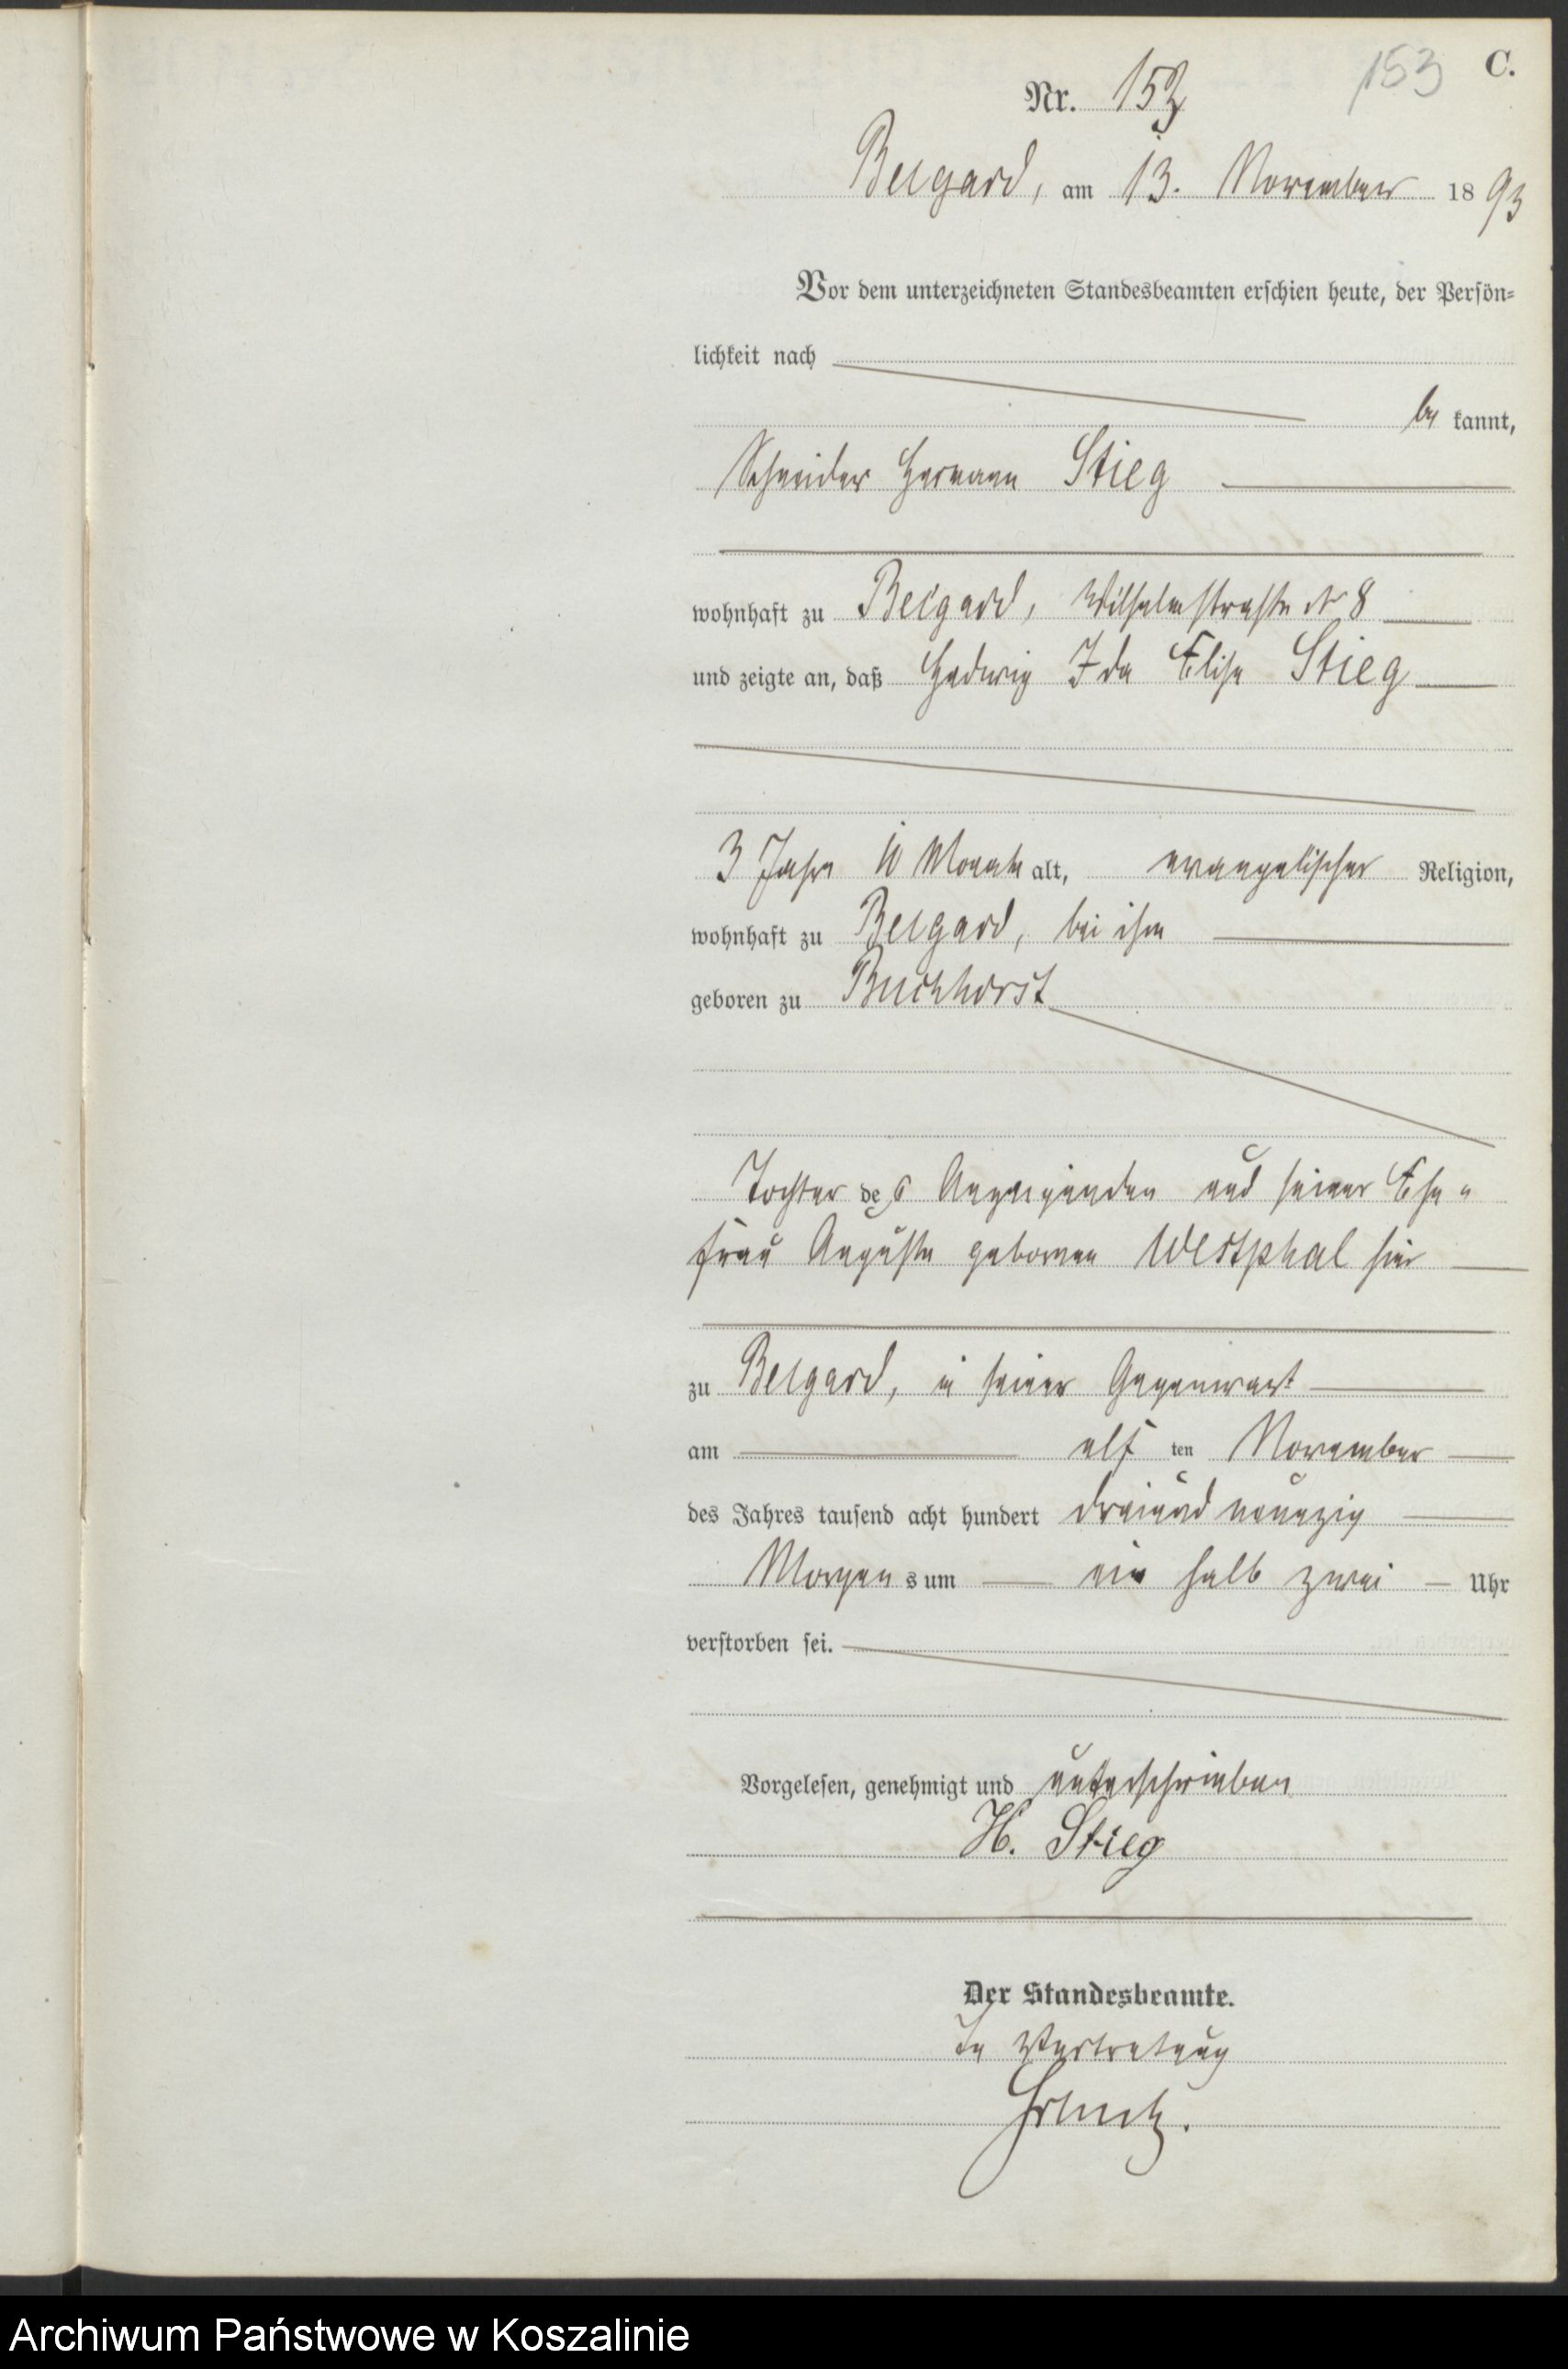 153 C.
Nr. 153
Belgard, am 13. November 1893
Vor dem unterzeichneten Standesbeamten erschien heute, der Persön=
lichkeit nach
be kannt,
Schneider Hermann Stieg
wohnhaft zu Belgard, Wilhelmstraße № 8
und zeigte an, daß Hedwig Ida Elise Stieg
3 Jahre 10 Monate alt, evangelischer Religion,
wohnhaft zu Belgard, bei ihm
geboren zu Buchhorst
Tochter des Anzeigenden und seiner Ehe=
frau Auguste geborenen Westphal hier
zu Belgard, in seiner Gegenwart
am elf ten November
des Jahres tausend acht hundert dreiundneunzig
Morgens um ein halb zwei Uhr
verstorben sei.
Vorgelesen, genehmigt und unterschrieben
H. Stieg
Der Standesbeamte.
In Vertretung
Archiwum Państwowe w Koszalinie